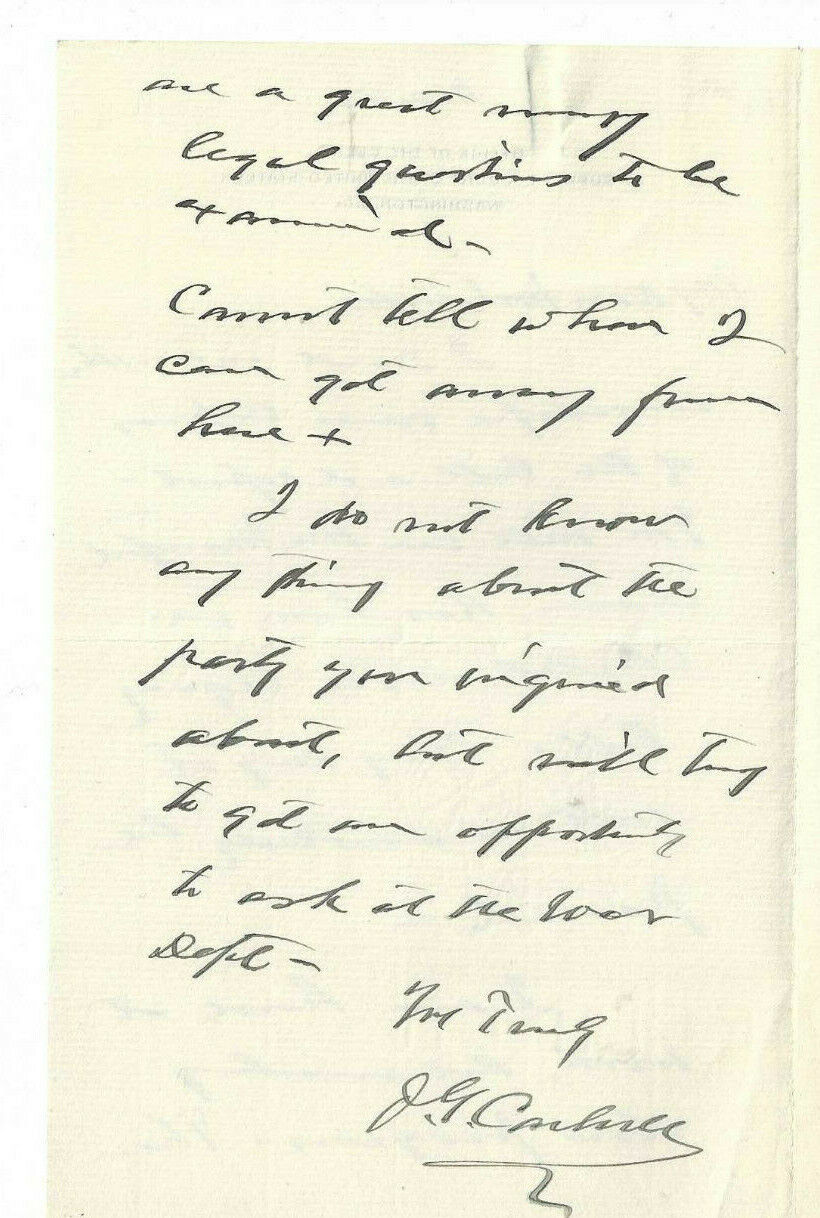 are a great many
legal questions to be
examined -
Cannot tell when I
can get away from
here +
I do not know
any thing about the
party you inquired
about, but will try
to get an opportunity
to ask at the War
Dept -
Yrs Truly
J. G. Carlisle